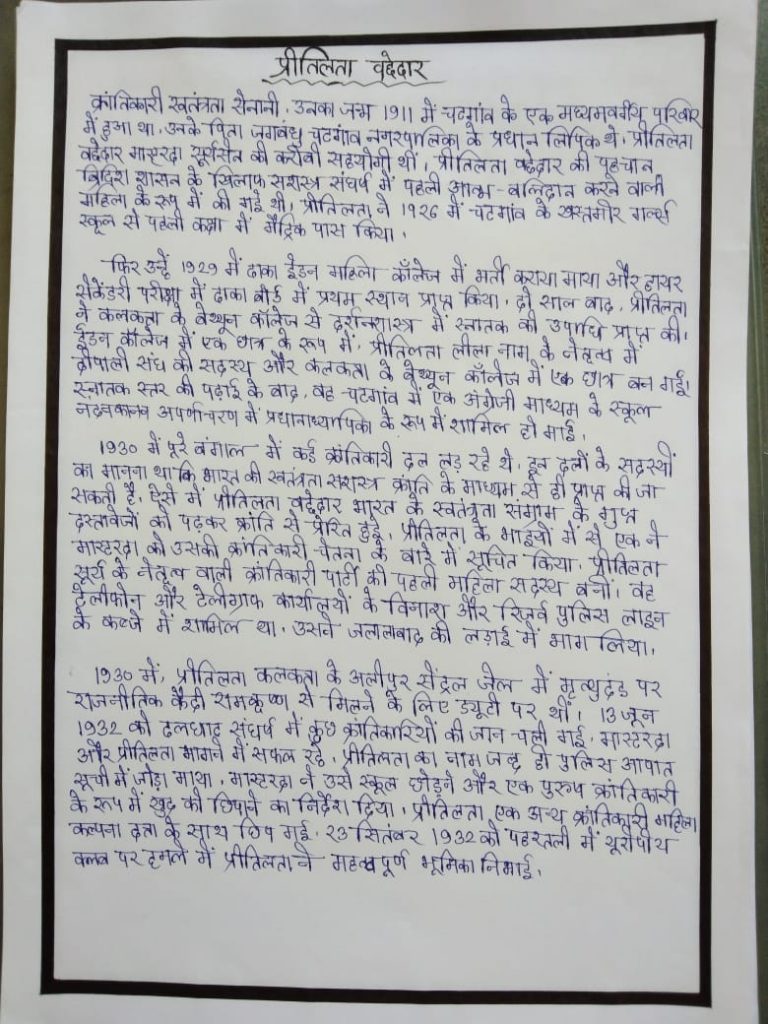 प्रीतिलता वद्देदार
क्रांतिकारी स्वतंत्रता सेनानी. उनका जन्म 1911 में चटगांव के एक मध्यमवर्गीय परिवार
में हुआ था. उनके पिता जगबंधु चटगांव नगरपालिका के प्रधान लिपिक थे. प्रीतिलता
वद्देदार मास्टरदा सूर्यसेन की करीबी सहयोगी थीं. प्रीतिलता वद्देदार की पहचान
ब्रिटिश शासन के खिलाफ सशस्त्र संघर्ष में पहली आत्म-बलिदान करने वाली
महिला के रूप में की गई थी. प्रीतिलता ने 1926 में चटगांव के खस्तगीर गर्ल्स
स्कूल से पहली कक्षा में मैट्रिक पास किया.
फिर उन्हें 1929 में ढाका ईडन महिला कॉलेज में भर्ती कराया गया और हायर
सेकेंडरी परीक्षा में ढाका बोर्ड में प्रथम स्थान प्राप्त किया. दो साल बाद, प्रीतिलता
ने कलकत्ता के बेथ्यून कॉलेज से दर्शनशास्त्र में स्नातक की उपाधि प्राप्त की.
ईडन कॉलेज में एक छात्र के रूप में, प्रीतिलता लीला नाग के नेतृत्व में
दीपाली संघ की सदस्य और कलकत्ता के बेथ्यून कॉलेज में एक छात्र बन गईं.
स्नातक स्तर की पढ़ाई के बाद, वह चटगांव में एक अंग्रेजी माध्यम के स्कूल
अपर्णाचरण में प्रधानाध्यापिका के रूप में शामिल हो गई.
1930 में पूरे बंगाल में कई क्रांतिकारी दल लड़ रहे थे. इन दलों के सदस्यों
का मानना था कि भारत की स्वतंत्रता सशस्त्र क्रांति के माध्यम से ही प्राप्त की जा
सकती है. ऐसे में प्रीतिलता वद्देदार भारत के स्वतंत्रता संग्राम के गुप्त
दस्तावेजों को पढ़कर क्रांति से प्रेरित हुई. प्रीतिलता के भाइयों में से एक ने
मास्टरदा को उसकी क्रांतिकारी चेतना के बारे में सूचित किया. प्रीतिलता
सूर्य के नेतृत्व वाली क्रांतिकारी पार्टी की पहली महिला सदस्य बनीं. वह
टेलीफोन और टेलीग्राफ कार्यालयों के विनाश और रिजर्व पुलिस लाइन
के कब्जे में शामिल था. उसने जलालाबाद की लड़ाई में भाग लिया.
1930 में, प्रीतिलता कलकत्ता के अलीपुर सेंट्रल जेल में मृत्युदंड पर
राजनीतिक कैदी रामकृष्ण से मिलने के लिए ड्यूटी पर थीं. 13 जून
1932 को ढलघाट संघर्ष में कुछ क्रांतिकारियों की जान चली गई. मास्टरदा
और प्रीतिलता भागने में सफल रहे. प्रीतिलता का नाम जल्द ही पुलिस आपात
सूची में जोड़ा गया. मास्टरदा ने उसे स्कूल छोड़ने और एक पुरुष क्रांतिकारी
के रूप में खुद को छिपाने का निर्देश दिया. प्रीतिलता एक अन्य क्रांतिकारी महिला
कल्पना दत्ता के साथ छिप गई. 23 सितंबर 1932 को पहरतली में यूरोपीय
क्लब पर हमले में प्रीतिलता ने महत्वपूर्ण भूमिका निभाई.